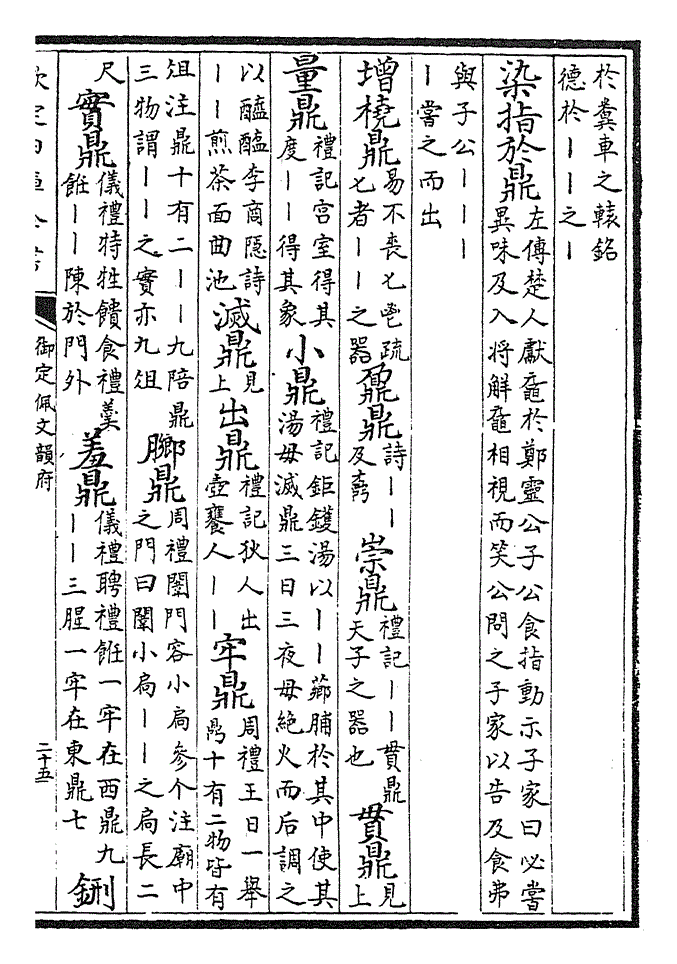 於糞車之轅銘
德於丨丨之丨
染指於鼎左傳楚人獻黿於鄭靈公子公食指動示子家曰必嘗
異味及入將解黿相視而笑公問之子家以告及食弗
與子公丨丨丨
丨嘗之而出
增橈鼎易不喪匕鬯疏
匕者丨丨之器鼐鼎詩丨丨
及鼒崇鼎禮記丨丨貫鼎
天子之器也貫鼎見
上
量鼎禮記宫室得其
度丨丨得其象小鼎禮記鉅鑊湯以丨丨薌脯於其中使其
湯毋滅鼎三日三夜毋絶火而后調之
以醯醢李商隱詩
丨丨煎茶面曲池滅鼎見
上出鼎禮記狄人出
壺饔人丨丨牢鼎周禮王日一舉
鼎十有二物皆有
俎注鼎十有二丨丨九陪鼎
三物謂丨丨之實亦九俎䐋鼎周禮闈門容小扃參个注廟中
之門曰闈小扃丨丨之扃長二
尺實鼎儀禮特牲饋食禮羹
飪丨丨陳於門外羞鼎儀禮聘禮飪一牢在西鼎九
丨丨三腥一牢在東鼎七鉶
欽定四庫全書
御定佩文韻府
二十五